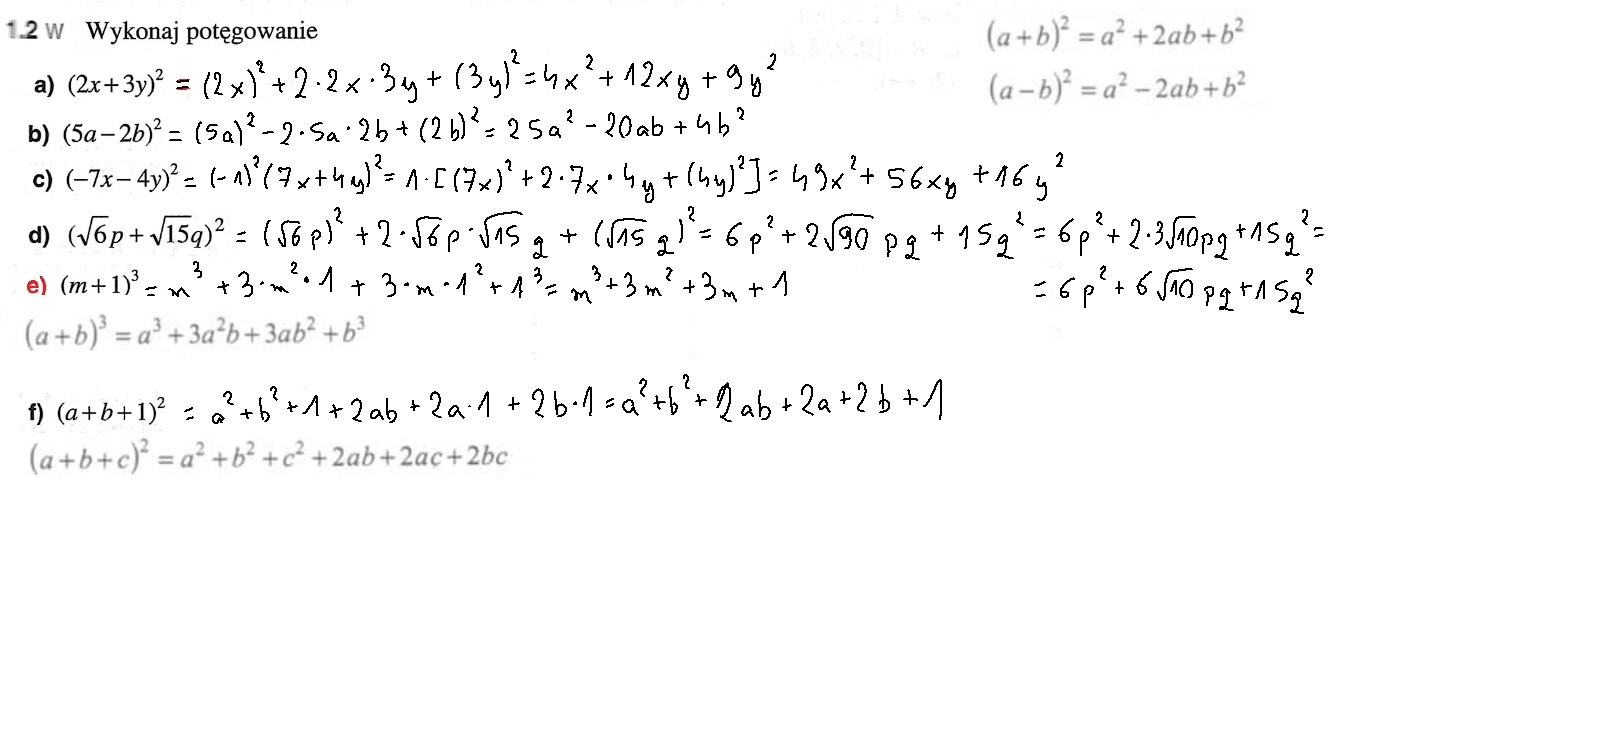 1.2 W Wykonaj potęgowanie
(a+b)² = a² + 2ab + b²
(a−b)² = a² − 2ab + b²
a) (2x+3y)² = (2x)² + 2·2x·3y + (3y)² = 4x² + 12xy + 9y²
b) (5a−2b)² = (5a)² − 2·5a·2b + (2b)² = 25a² − 20ab + 4b²
c) (−7x−4y)² = (−1)²(7x+4y)² = 1·[(7x)² + 2·7x·4y + (4y)²] = 49x² + 56xy + 16y²
d) (√6p+√15q)² = (√6p)² + 2·√6p·√15q + (√15q)² = 6p² + 2√90pq + 15q² = 6p² + 2·3√10pq + 15q² =
= 6p² + 6√10pq + 15q²
e) (m+1)³ = m³ + 3·m²·1 + 3·m·1² + 1³ = m³ + 3m² + 3m + 1
(a+b)³ = a³ + 3a²b + 3ab² + b³
f) (a+b+1)² = a² + b² + 1 + 2ab + 2a·1 + 2b·1 = a² + b² + 2ab + 2a + 2b + 1
(a+b+c)² = a² + b² + c² + 2ab + 2ac + 2bc